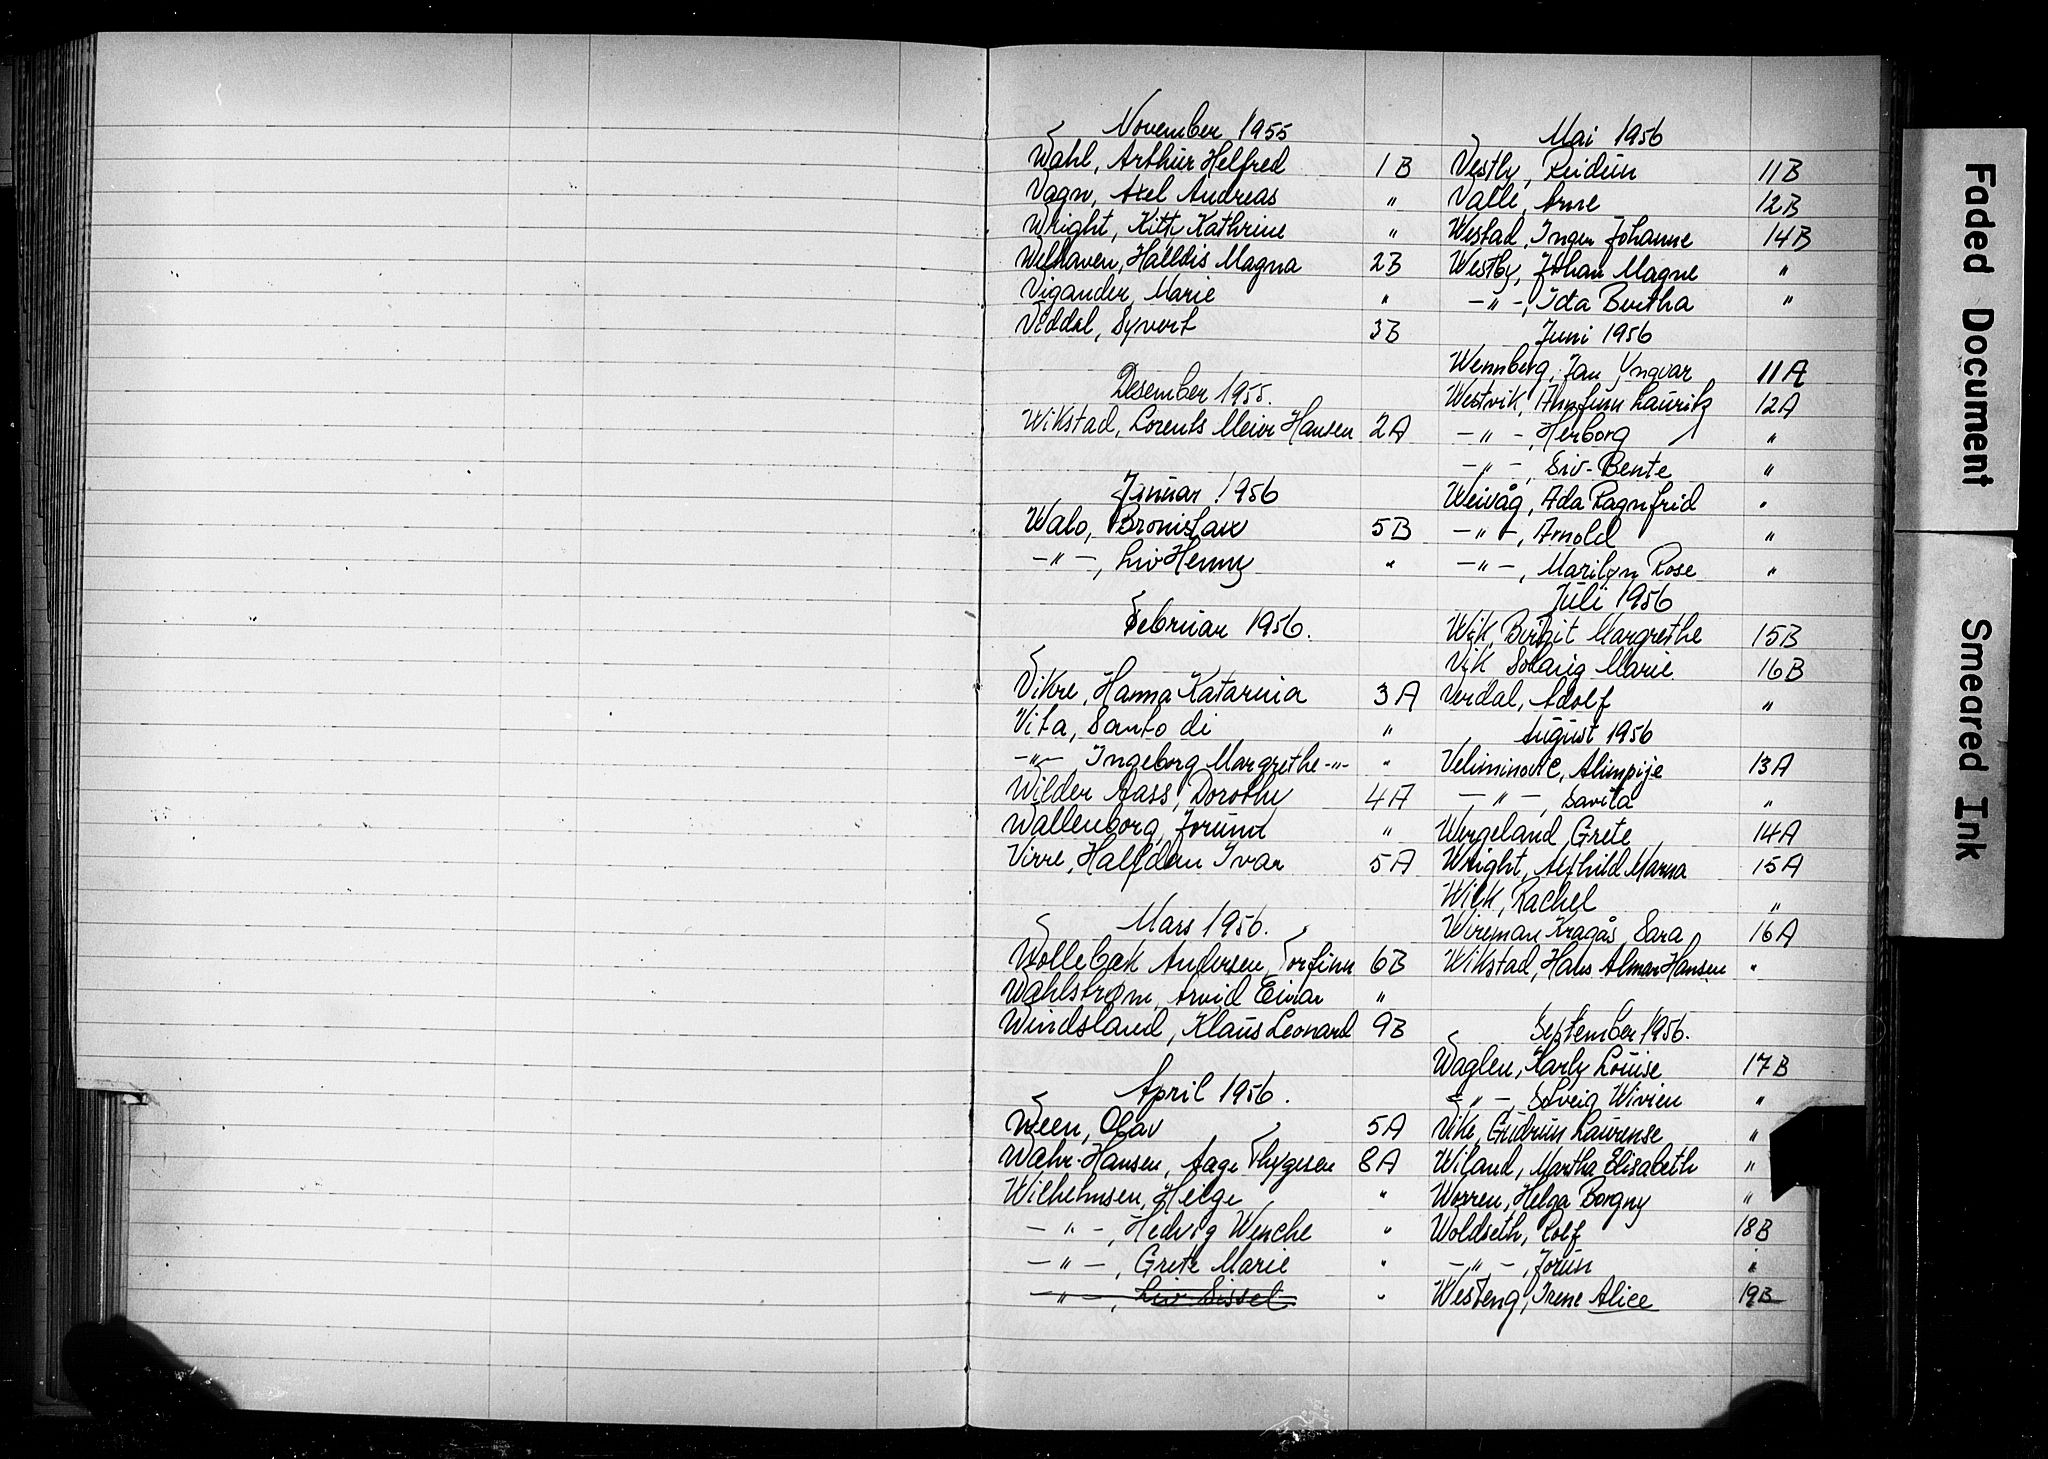 November 1955
Wahl, Arthur Helfred 1B
Vagn, Axel Andreas "
Wright, Kitty Kathrine "
Welhaven, Halldis Magna 2B
Vigander, Marie "
Veddal, Syvert 3B
Desember 1955.
Wikstad, Lorents Meier Hansen 2A
Januar 1956
Walo, Bronislaw 5B
-"-, Liv Henny "
Februar 1956.
Vikre, Hanna Katarina 3A
Vita, Santo di "
-"- Ingeborg Margrethe -"- "
Wilder Aass, Dorothy 4A
Wallenborg, Jorunn "
Virre, Halfdan Ivar 5A
Mars 1956.
Wollebæk Andersen, Torfinn 6B
Wahlstrøm, Arvid Einar "
Windsland, Klaus Leonard 9B
April 1956.
Ween, Olav 5A
Wahr-Hansen, Aage Thygesen 8A
Wilhelmsen, Helge "
-"-, Hedvig Wenche "
-"-, Grete Marie "
-"-, Liv Sissel "
Mai 1956
Vestby, Reidun 11B
Valle, Arne 12B
Westad, Inger Johanne 14B
Westby, Johan Magne "
-"-, Ida Bertha "
Juni 1956
Wennberg, Jan Yngvar 11A
Westvik, Arnfinn Lauritz 12A
-"-, Herborg "
-"-, Siv-Bente "
Weivåg, Ada Ragnfrid "
-"-, Arnold "
-"-, Marilyn Rose "
Juli 1956
Wik, Birgit Margrethe 15B
Vik Solveig Marie 16B
Verdal, Adolf "
August 1956
Veliminović, Alimpije 13A
-"-, Savita "
Wergeland, Grete 14A
Wright, Alfhild Marna 15A
Wilk, Rachel "
Wireman Kragås, Sara 16A
Wikstad, Hans Almar Hansen "
September 1956.
Waglen, Karly Louise 17B
-"-, Solveig Wivien "
Vike, Gudrun Laurense "
Wiland, Martha Elisabeth "
Worren, Helga Borgny "
Woldseth, Rolf 18B
-"-, Jorun "
Westeng, Irene Alice 19B
Faded Document
Smeared Ink